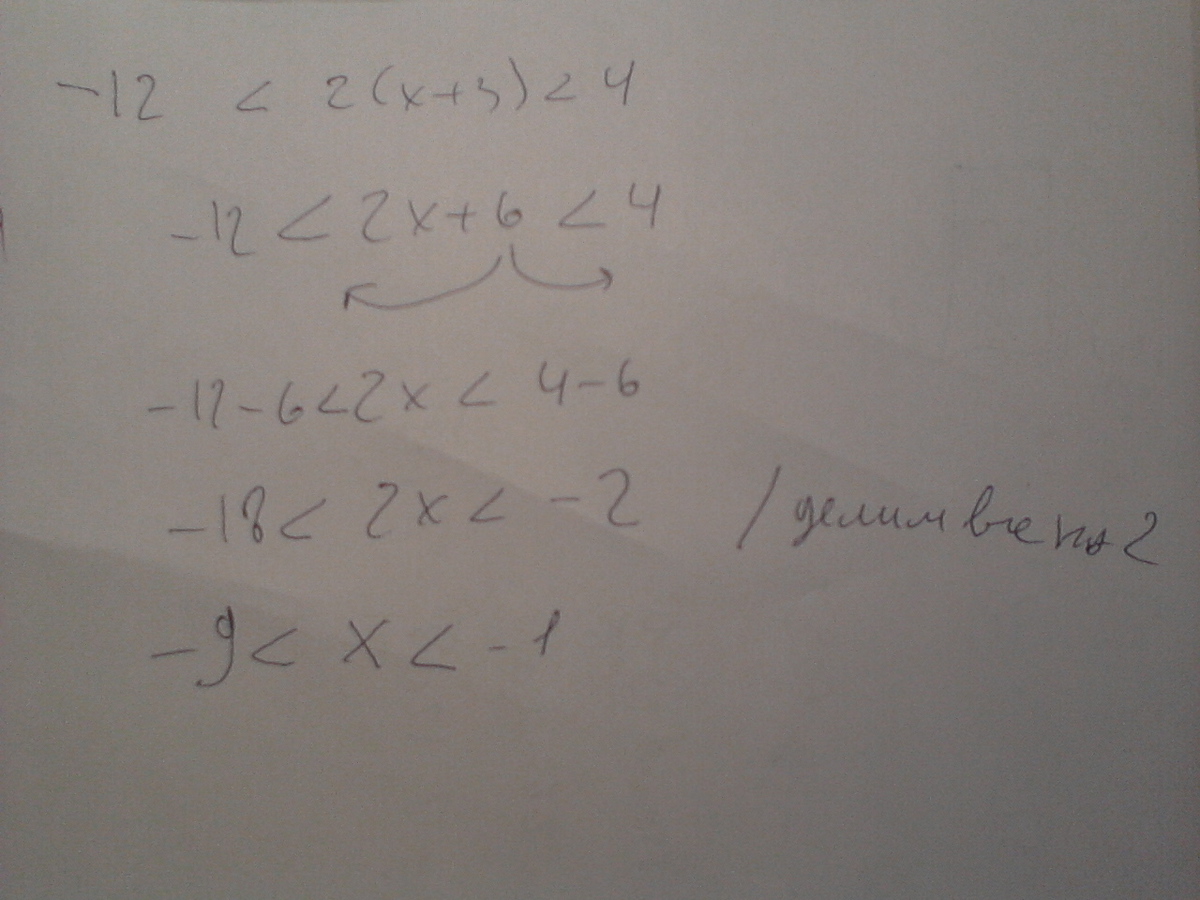 -12 < 2(x+3) < 4
-12 < 2x+6 < 4
-12-6 < 2x < 4-6
-18 < 2x < -2 / делим все на 2
-9 < x < -1